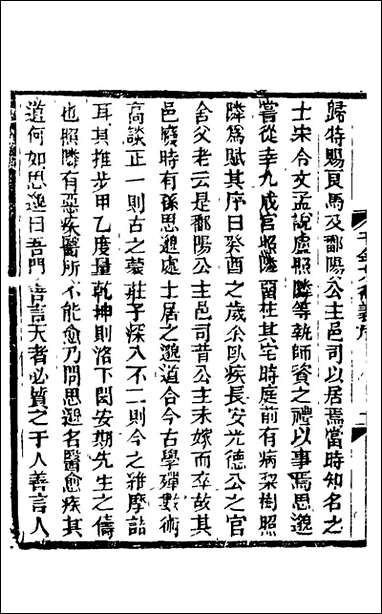 歸特賜良馬及鄱陽公主邑司以居焉當時知名之
士宋令文孟說盧照鄰等執師資之禮以事焉思邈
嘗從幸九成宮照隣留在其宅時庭前有病棃樹照
隣爲賦其序曰癸酉之歲余臥疾長安光德公之官
舍父老云是鄱陽公主邑司昔公主未嫁而卒故其
邑廢時有孫思邈處士居之邈道合今古學殫數術
高談正一則古之蒙莊子深入不二則今之維摩詰
耳其推步甲乙度量乾坤則洛下閎安期先生之儔
也照隣有惡疾醫所不能愈乃問思邈名醫愈疾其
道何如思邈曰吾聞善言天者必質之于人善言人
千金